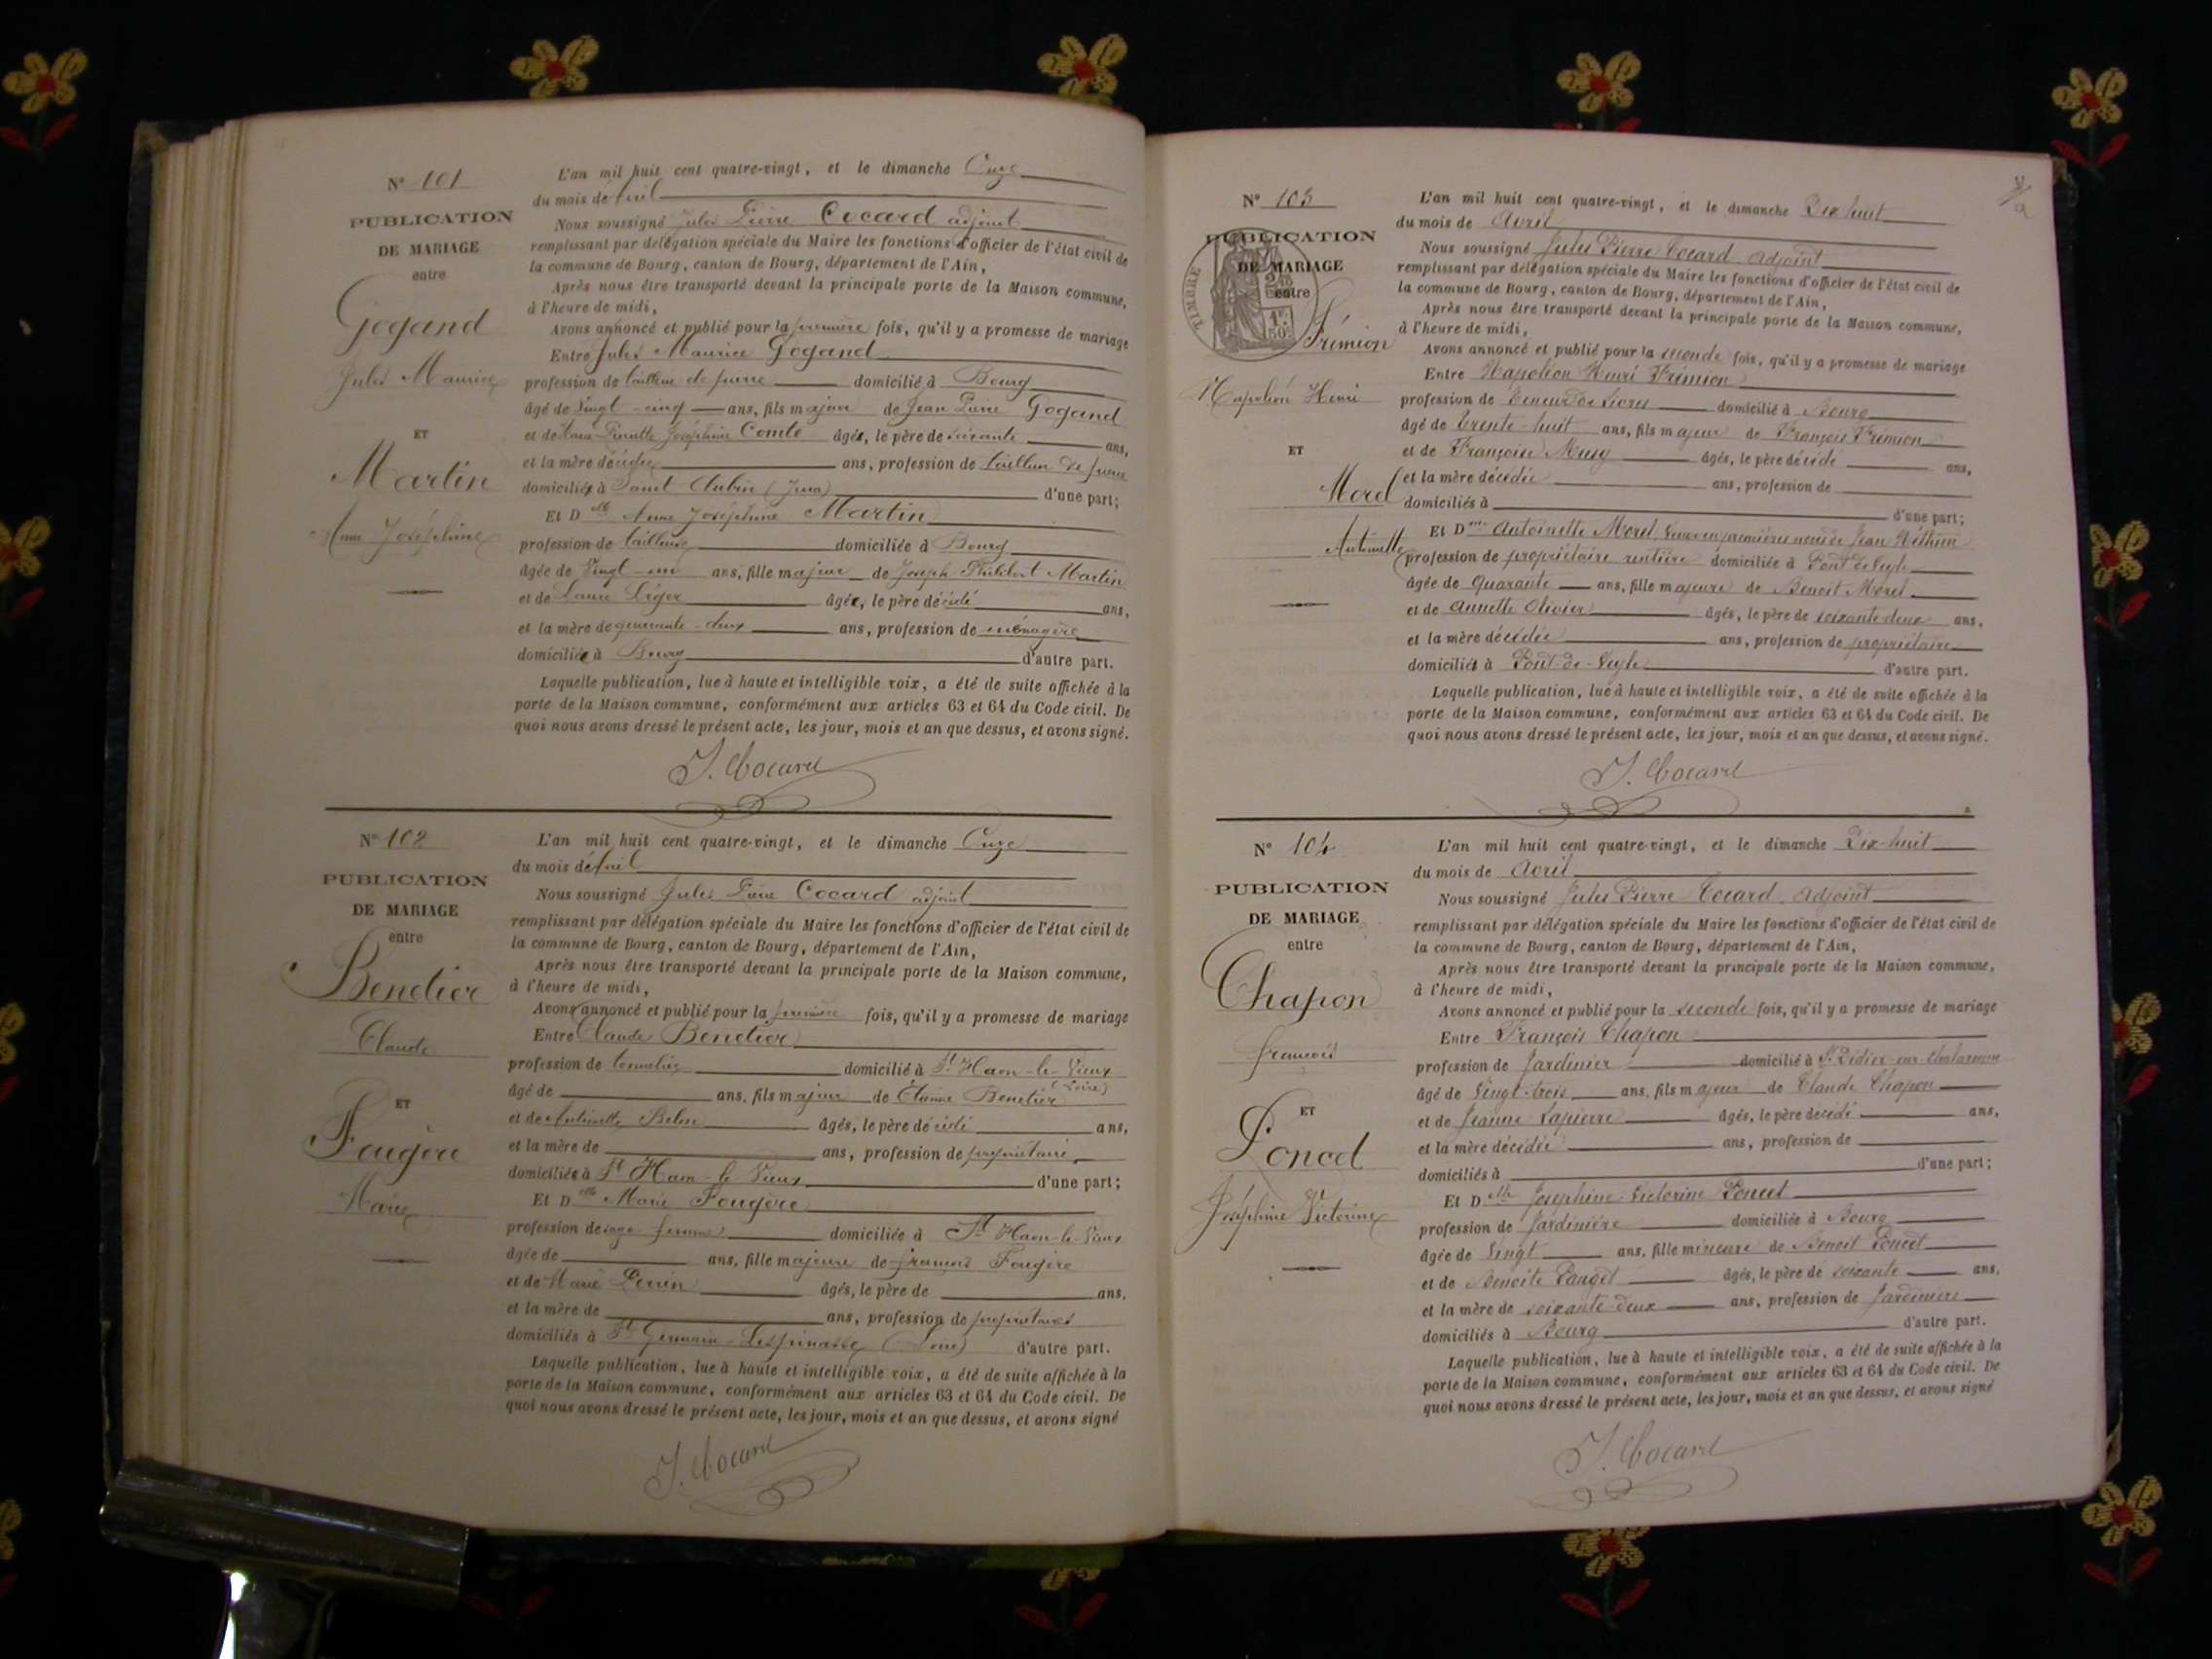 N° 101
PUBLICATION
DE MARIAGE
entre
Gogand
Jules Maurice
ET
Martin
Anne Joséphine
L'an mil huit cent quatre-vingt, et le dimanche Onze
du mois de Avril
Nous soussigné Jules Pierre Cocard adjoint
remplissant par délégation spéciale du Maire les fonctions d'officier de l'état civil de
la commune de Bourg, canton de Bourg, département de l'Ain,
Après nous être transporté devant la principale porte de la Maison commune,
à l'heure de midi,
Avons annoncé et publié pour la première fois, qu'il y a promesse de mariage
Entre Jules Maurice Gogand
profession de tailleur de pierre domicilié à Bourg
âgé de Vingt-cinq ans, fils majeur de Jean Pierre Gogand
et de Pierrette Joséphine Comte âgés, le père de soixante ans,
et la mère décédée ans, profession de tailleur de pierre
domiciliés à Saint Aubin (Jura) d'une part;
Et Dlle Anne Joséphine Martin
profession de tailleuse domiciliée à Bourg
âgée de Vingt-un ans, fille majeure de Joseph Philibert Martin
et de Laure Léger âgés, le père décédé ans,
et la mère de quarante-deux ans, profession de ménagère
domiciliée à Bourg d'autre part.
Laquelle publication, lue à haute et intelligible voix, a été de suite affichée à la
porte de la Maison commune, conformément aux articles 63 et 64 du Code civil. De
quoi nous avons dressé le présent acte, les jour, mois et an que dessus, et avons signé.
J. Cocard
N° 102
PUBLICATION
DE MARIAGE
entre
Benetier
Claude
ET
Fougère
Marie
L'an mil huit cent quatre-vingt, et le dimanche Onze
du mois de Avril
Nous soussigné Jules Pierre Cocard adjoint
remplissant par délégation spéciale du Maire les fonctions d'officier de l'état civil de
la commune de Bourg, canton de Bourg, département de l'Ain,
Après nous être transporté devant la principale porte de la Maison commune,
à l'heure de midi,
Avons annoncé et publié pour la première fois, qu'il y a promesse de mariage
Entre Claude Benetier
profession de tonnelier domicilié à St Haon-le-Vieux
(Loire)
âgé de ans, fils majeur de Etienne Benetier
et de Antoinette Belon âgés, le père décédé ans,
et la mère de ans, profession de propriétaire
domiciliés à St Haon-le-Vieux d'une part;
Et Dlle Marie Fougère
profession de sage femme domiciliée à St Haon-le-Vieux
âgée de ans, fille majeure de François Fougère
et de Marie Perrin âgés, le père de ans,
et la mère de ans, profession de propriétaires
domiciliés à St Germain-Lespinasse (Loire) d'autre part.
Laquelle publication, lue à haute et intelligible voix, a été de suite affichée à la
porte de la Maison commune, conformément aux articles 63 et 64 du Code civil. De
quoi nous avons dressé le présent acte, les jour, mois et an que dessus, et avons signé
J. Cocard
N° 103
PUBLICATION
DE MARIAGE
entre
TIMBRE
Frémion
Napoléon Henri
ET
Morel
Antoinette
L'an mil huit cent quatre-vingt, et le dimanche Dix huit
du mois de Avril
Nous soussigné Jules Pierre Cocard adjoint
remplissant par délégation spéciale du Maire les fonctions d'officier de l'état civil de
la commune de Bourg, canton de Bourg, département de l'Ain,
Après nous être transporté devant la principale porte de la Maison commune,
à l'heure de midi,
Avons annoncé et publié pour la seconde fois, qu'il y a promesse de mariage
Entre Napoléon Henri Frémion
profession de teneur de livres domicilié à Bourg
âgé de trente-huit ans, fils majeur de François Frémion
et de Françoise Musy âgés, le père décédé ans,
et la mère décédée ans, profession de
domiciliés à d'une part;
Et Dme Antoinette Morel, veuve en premières noces de Jean Réthun
profession de propriétaire rentière domiciliée à Pont de Veyle
âgée de quarante ans, fille majeure de Benoit Morel
et de Annette Olivier âgés, le père de soixante-deux ans,
et la mère décédée ans, profession de propriétaire
domiciliés à Pont-de-Veyle d'autre part.
Laquelle publication, lue à haute et intelligible voix, a été de suite affichée à la
porte de la Maison commune, conformément aux articles 63 et 64 du Code civil. De
quoi nous avons dressé le présent acte, les jour, mois et an que dessus, et avons signé.
J. Cocard
N° 104
PUBLICATION
DE MARIAGE
entre
Chapon
François
ET
Poncet
Joséphine Victorine
L'an mil huit cent quatre-vingt, et le dimanche Dix-huit
du mois de Avril
Nous soussigné Jules Pierre Cocard, adjoint
remplissant par délégation spéciale du Maire les fonctions d'officier de l'état civil de
la commune de Bourg, canton de Bourg, département de l'Ain,
Après nous être transporté devant la principale porte de la Maison commune,
à l'heure de midi,
Avons annoncé et publié pour la seconde fois, qu'il y a promesse de mariage
Entre François Chapon
profession de Jardinier domicilié à St Didier-sur-Chalaronne
âgé de Vingt-trois ans, fils majeur de Claude Chapon
et de Jeanne Lapierre âgés, le père décédé ans,
et la mère décédée ans, profession de
domiciliés à d'une part;
Et Dlle Joséphine Victorine Poncet
profession de Jardinière domiciliée à Bourg
âgée de Vingt ans, fille mineure de Benoit Poncet
et de Benoite Pauget âgés, le père de soixante ans,
et la mère de soixante-deux ans, profession de Jardiniers
domiciliés à Bourg d'autre part.
Laquelle publication, lue à haute et intelligible voix, a été de suite affichée à la
porte de la Maison commune, conformément aux articles 63 et 64 du Code civil. De
quoi nous avons dressé le présent acte, les jour, mois et an que dessus, et avons signé
J. Cocard